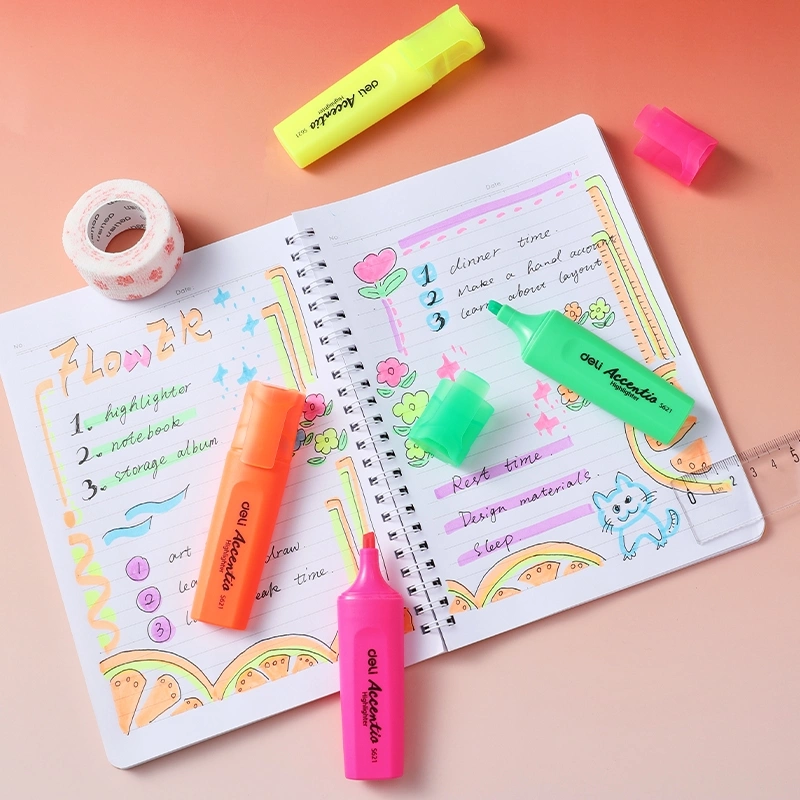 deli Accentio
Highlighter S621
delian
No.
Date
FLOWER
1. highlighter
2. notebook
3. storage album
1 art draw.
2
3 time.
deli Accentio
Highlighter S621
No.
Date
1 dinner time.
2 Make a hand acount
3 learn about layout
deli Accentio
Highlighter S621
Rest time.
Design materials.
Sleep.
0 1 2 3 4 5
deli Accentio
Highlighter S621